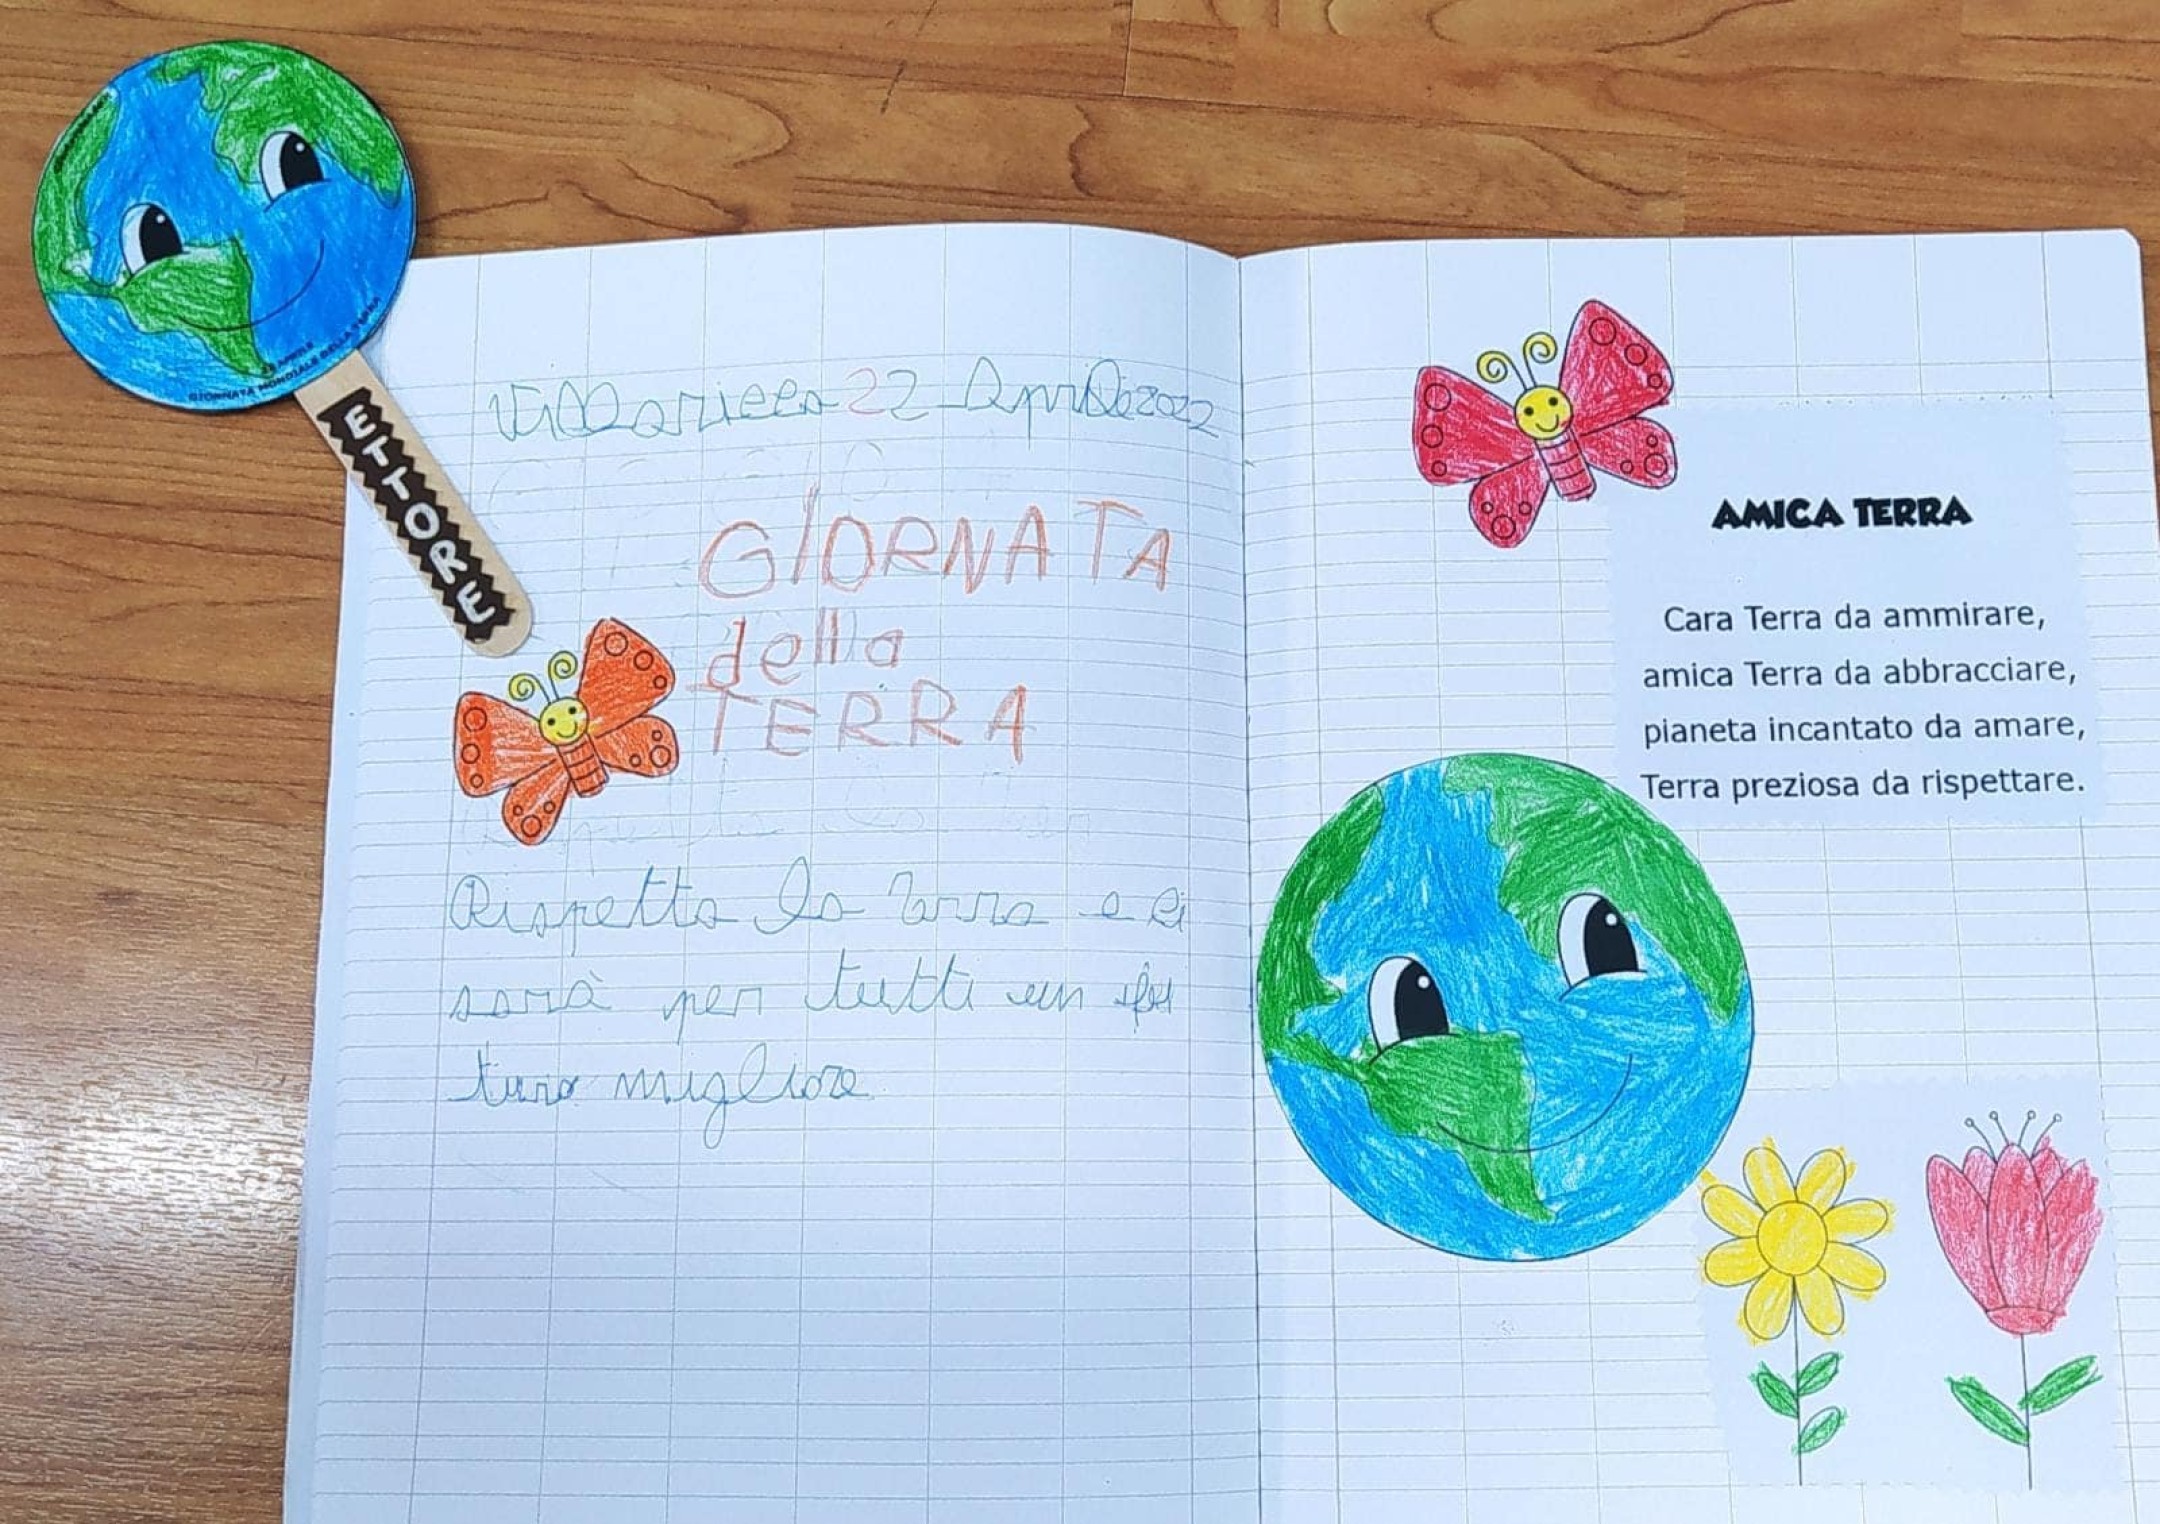 22 APRILE
GIORNATA MONDIALE DELLA TERRA
ETTORE
Villaricca 22 Aprile 2022
GIORNATA
della
TERRA
Rispetto la Terra e ci
sarà per tutti un fu
turo migliore
AMICA TERRA
Cara Terra da ammirare,
amica Terra da abbracciare,
pianeta incantato da amare,
Terra preziosa da rispettare.